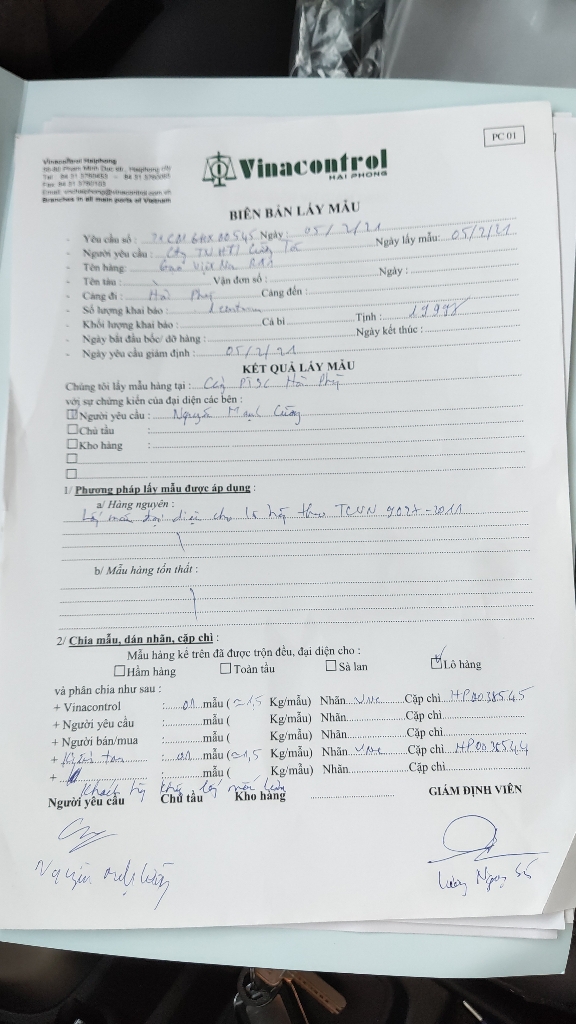 PC 01
Vinacontrol Haiphong
Branches in all main parts of Vietnam
Vinacontrol
HAI PHONG
BIÊN BẢN LẤY MẪU
- Yêu cầu số : Ngày : 05/2/21 Ngày lấy mẫu: 05/2/21
- Người yêu cầu : Cty TNHH
- Tên hàng: Gạo Việt Nam
- Tên tàu : Vận đơn số : Ngày :
- Cảng đi : Hải Phòng Cảng đến :
- Số lượng khai báo :
- Khối lượng khai báo : Cả bì Tịnh :
- Ngày bắt đầu bốc/ dỡ hàng : Ngày kết thúc :
- Ngày yêu cầu giám định : 05/2/21
KẾT QUẢ LẤY MẪU
Chúng tôi lấy mẫu hàng tại : Cảng Hải Phòng
với sự chứng kiến của đại diện các bên :
Người yêu cầu : Nguyễn Mạnh Cường
Chủ tàu :
Kho hàng :
1/ Phương pháp lấy mẫu được áp dụng :
a/ Hàng nguyên :
Lấy mẫu đại diện cho lô hàng theo TCVN 9027-2011
b/ Mẫu hàng tổn thất :
2/ Chia mẫu, dán nhãn, cặp chì :
Mẫu hàng kể trên đã được trộn đều, đại diện cho :
Hầm hàng Toàn tàu Sà lan Lô hàng
và phân chia như sau :
+ Vinacontrol : 01 mẫu ( ≃1,5 Kg/mẫu) Nhãn VNC Cặp chì HP0038545
+ Người yêu cầu : mẫu ( Kg/mẫu) Nhãn Cặp chì
+ Người bán/mua : mẫu ( Kg/mẫu) Nhãn Cặp chì
+ : 01 mẫu ( ≃1,5 Kg/mẫu) Nhãn VNC Cặp chì HP0038544
+ : mẫu ( Kg/mẫu) Nhãn Cặp chì
Khách hàng không lấy mẫu
Người yêu cầu Chủ tàu Kho hàng GIÁM ĐỊNH VIÊN
Nguyễn Mạnh Cường Lương Ngọc